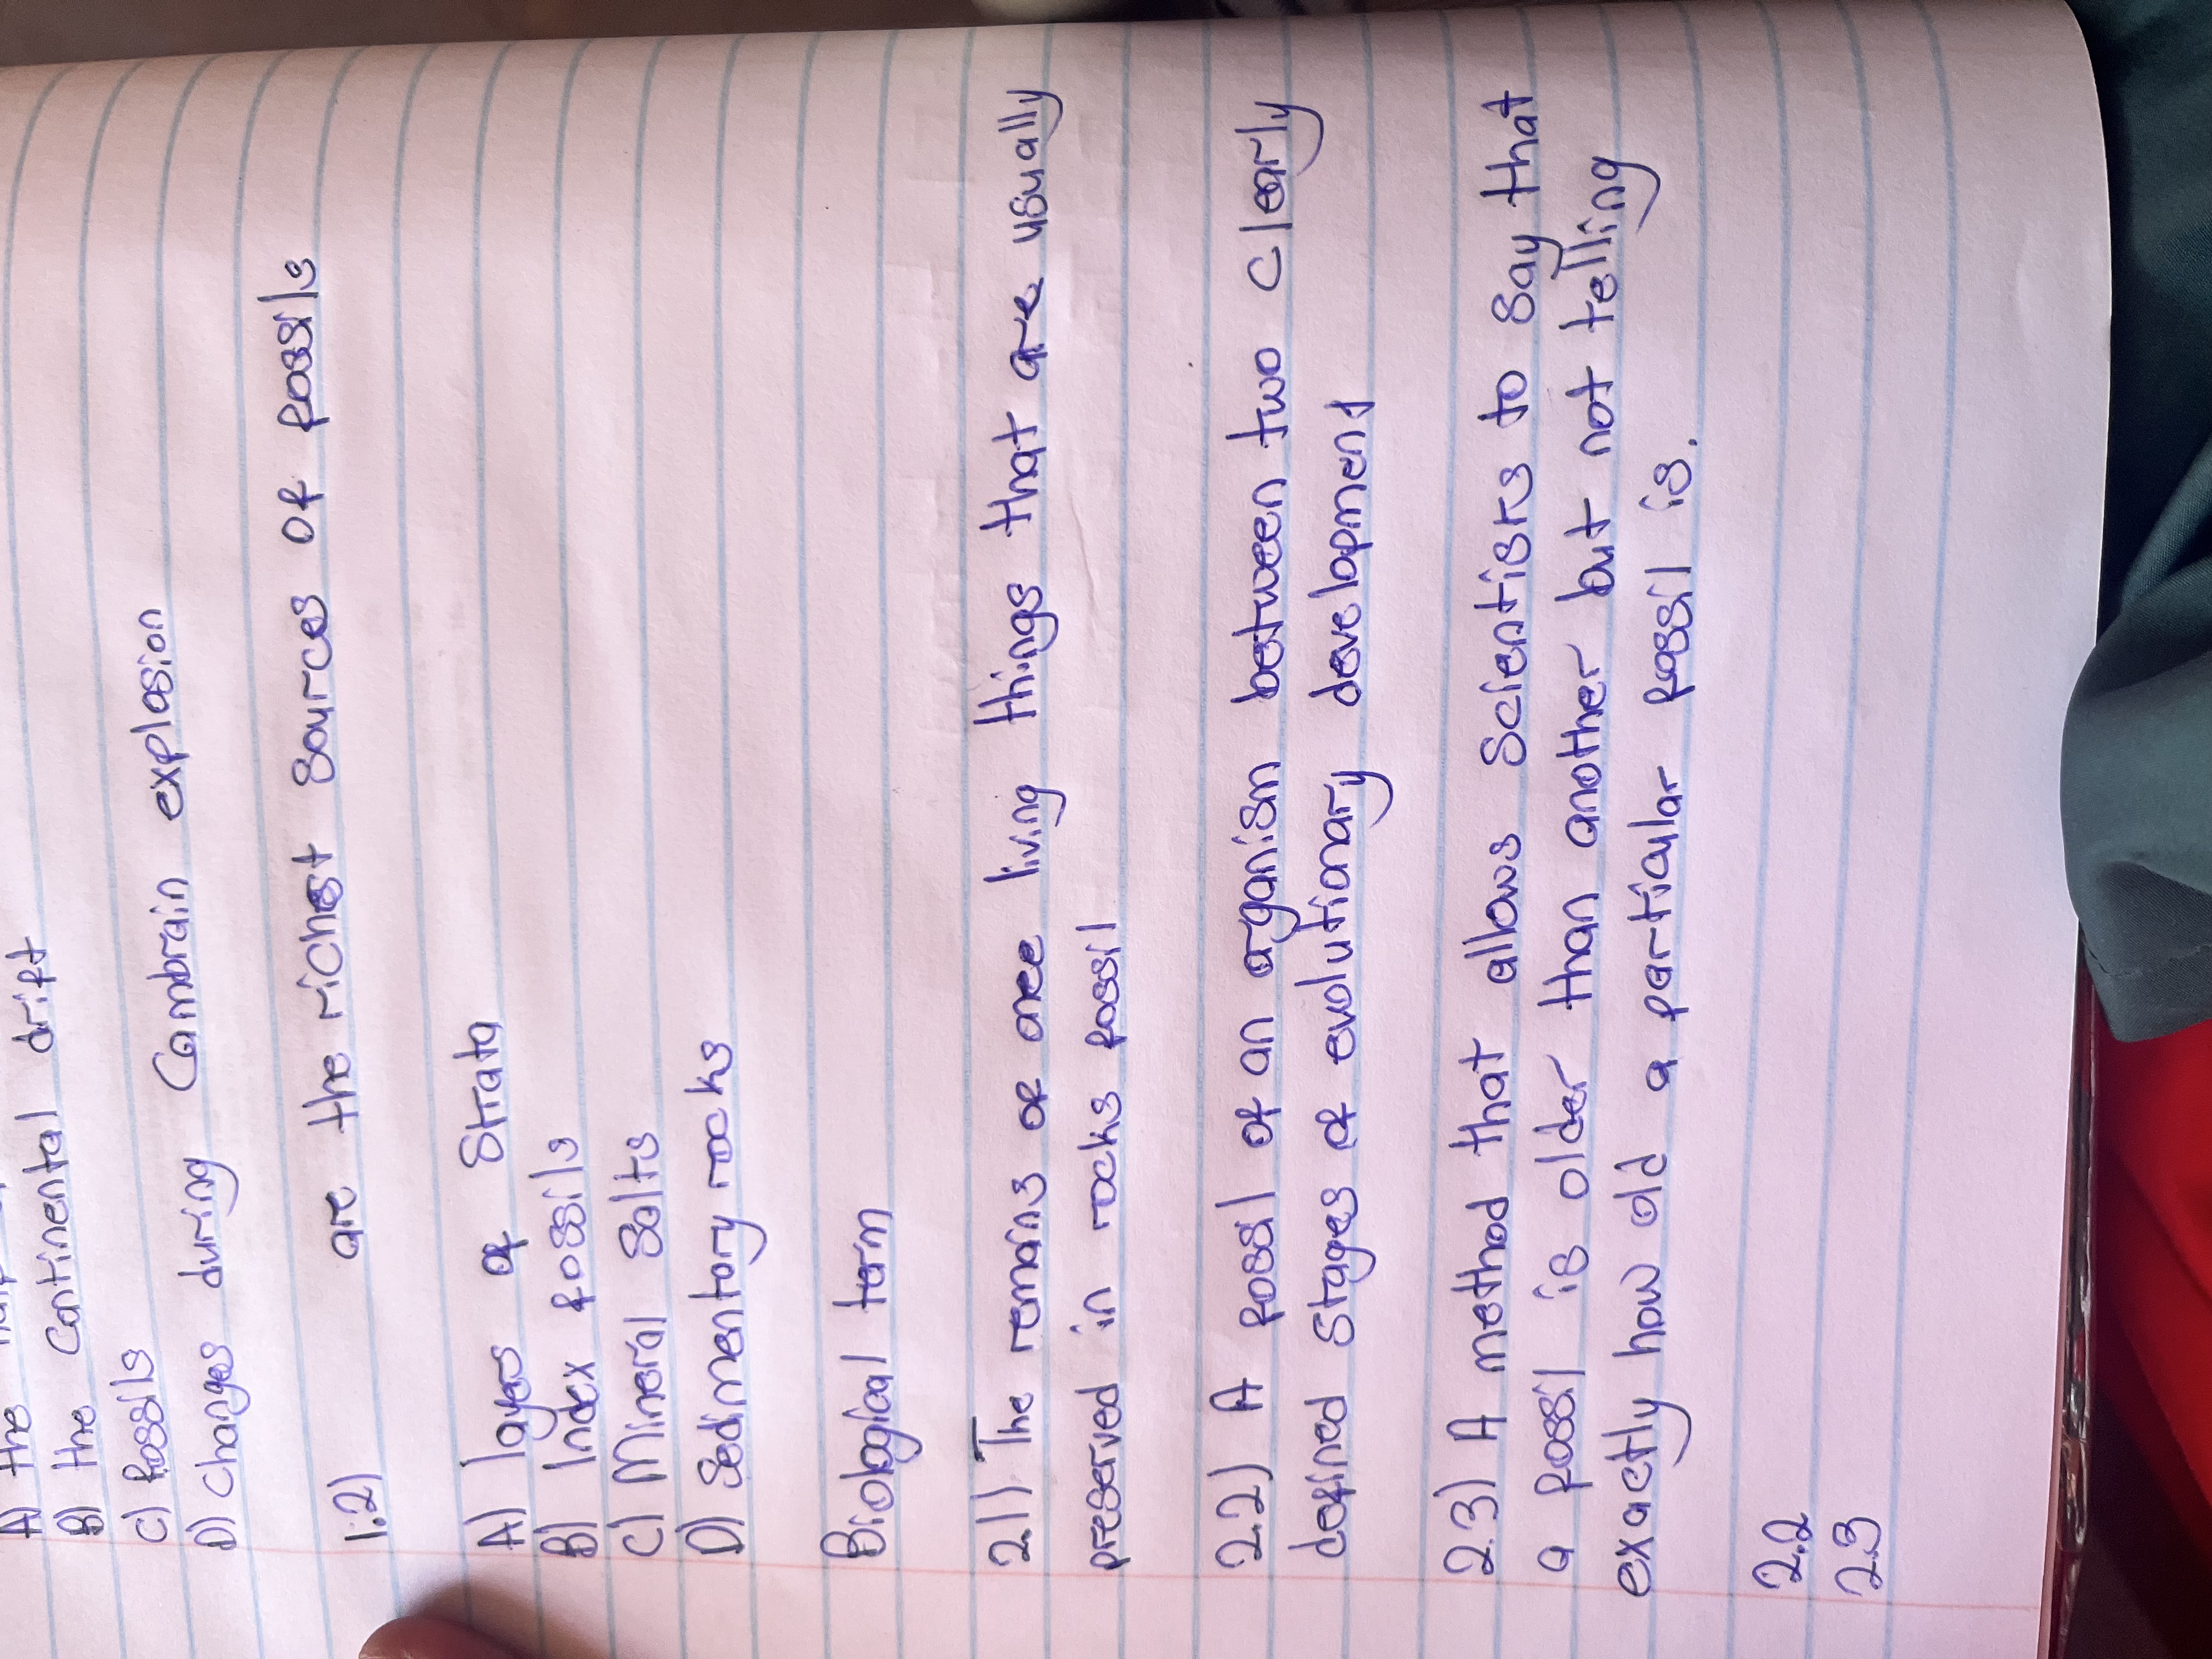 A) the
B) the Continental drift
C) fossils
D) changes during Cambrain explosion
1.2) are the richest sources of fossils
A) layers of strata
B) Index fossils
C) Mineral salts
D) Sedimentory rocks
Biological term
2.1) The remains of once living things that are usually
preserved in rocks fossil
2.2) A fossil of an organism between two clearly
defined stages of evolutionary development
2.3) A method that allows scientists to say that
a fossil is older than another but not telling
exactly how old a particular fossil is.
2.2
2.3